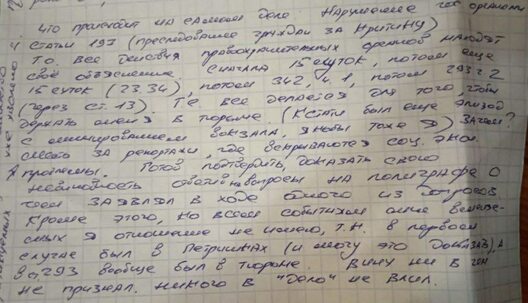 Что происходит на самом деле Нарушение гос органами
статьи 197 (преследование граждан за критику)
То все действия правоохранительных органов находят
своё объяснение. Сначала 15 суток, потом еще
15 суток (23.34), потом 342 ч 1, потом 293 ч 2
(через ст. 13). Т.е все делается для того, чтобы
держать меня в тюрьме. (Кстати был еще эпизод
с минированием вокзала, якобы тоже я) Зачем?
за репортажи, где вскрываются соц. экон.
проблемы. Готов подтвердить, доказать свою
невиновность ответив на вопросы на полиграфе о
чем заявлял в ходе одного из допросов
Кроме этого, ко всем событиям мне вменяе-
мых я отношение не имею, т.к. в первом
случае был в Петришках (и могу это доказать), а
в 293 вообще был в тюрьме. Вину ни в чем
не признал. Никого в "дело" не влил.